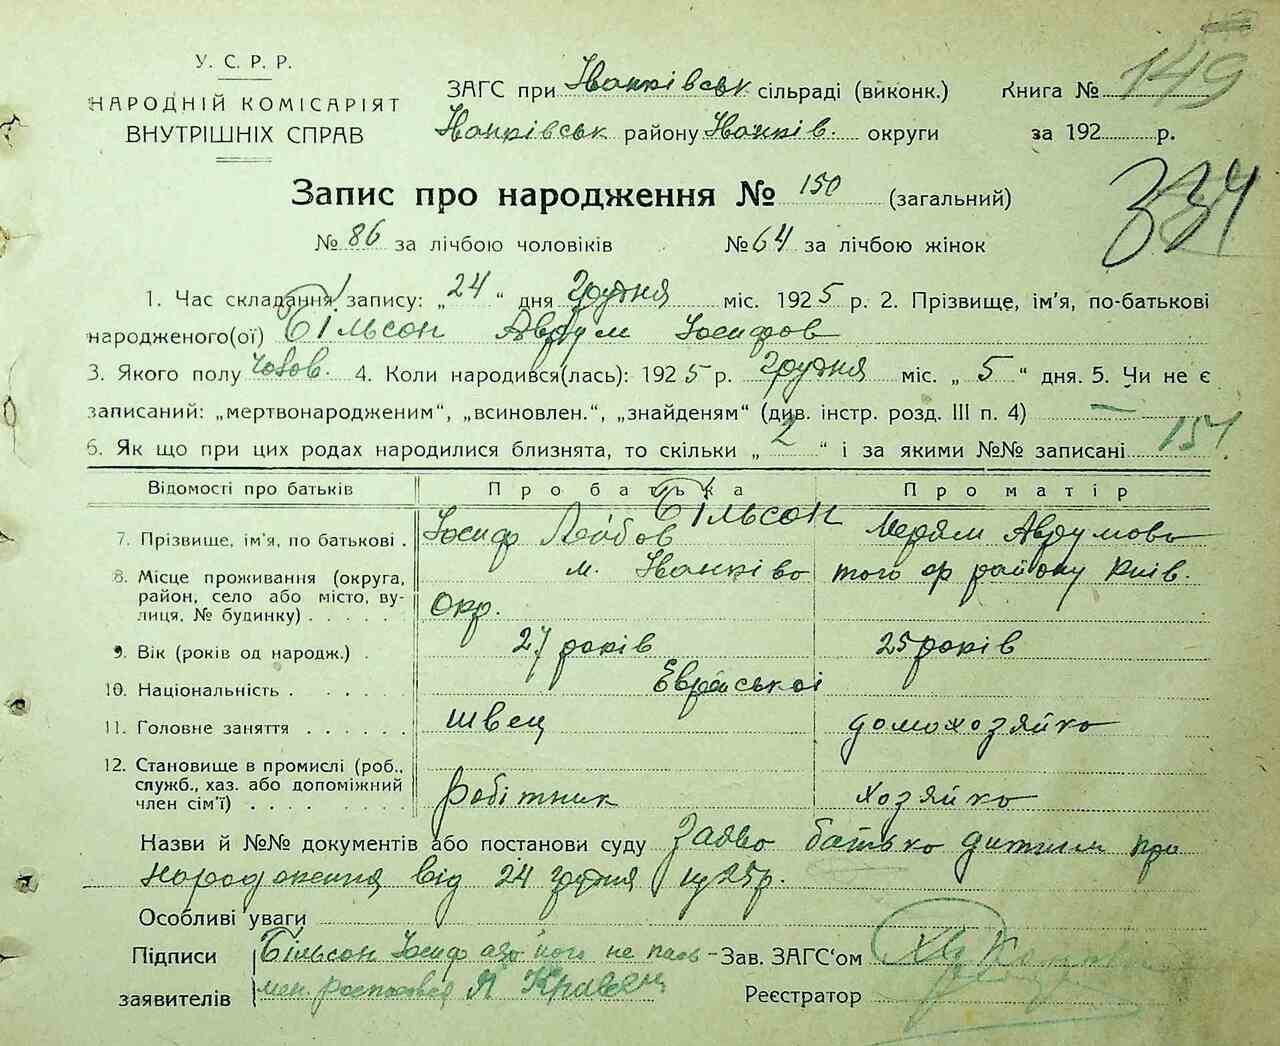 У. С. Р. Р.
НАРОДНІЙ КОМІСАРІЯТ
ВНУТРІШНІХ СПРАВ
ЗАГС при Іванківськ сільраді (виконк.) Книга №
149
Іванківськ району Іванків. округи за 192 р.
Запис про народження № 150 (загальний)
334
№ 86 за лічбою чоловіків № 64 за лічбою жінок
1. Час складання запису: „24“ дня Грудня міс. 1925 р. 2. Прізвище, ім'я, по-батькові
народженого(ої) Більсон Аврум Іосифов
3. Якого полу Чолов. 4. Коли народився(лась): 1925 р. Грудня міс. „5“ дня. 5. Чи не є
записаний: „мертвонародженим“, „всиновлен.“, „знайденям“ (див. інстр. розд. III п. 4) —
6. Як що при цих родах народилися близнята, то скільки „2“ і за якими №№ записані 151.
Відомості про батьків Про батька Про матір
Більсон
7. Прізвище, ім'я, по батькові . Іосиф Лейбов Мерям Аврумова
8. Місце проживання (округа, м. Іванків того ж району Київ.
район, село або місто, ву-
лиця, № будинку) . . . . . Окр.
9. Вік (років од народж.) . 27 років 25 років
10. Національність . . . . . Еврейської
11. Головне заняття . . . . . . швец домохозяйка
12. Становище в промислі (роб.,
служб., хаз. або допоміжний
член сім'ї) . . . . . . . робітник хозяйка
Назви й №№ документів або постанови суду Заява батька дитини про
народження від 24 грудня 1925р.
Особливі уваги
Підписи Більсон Іосиф а за його не пись- Зав. ЗАГС'ом
заявителів мен. росписався Я Кравец Реєстратор